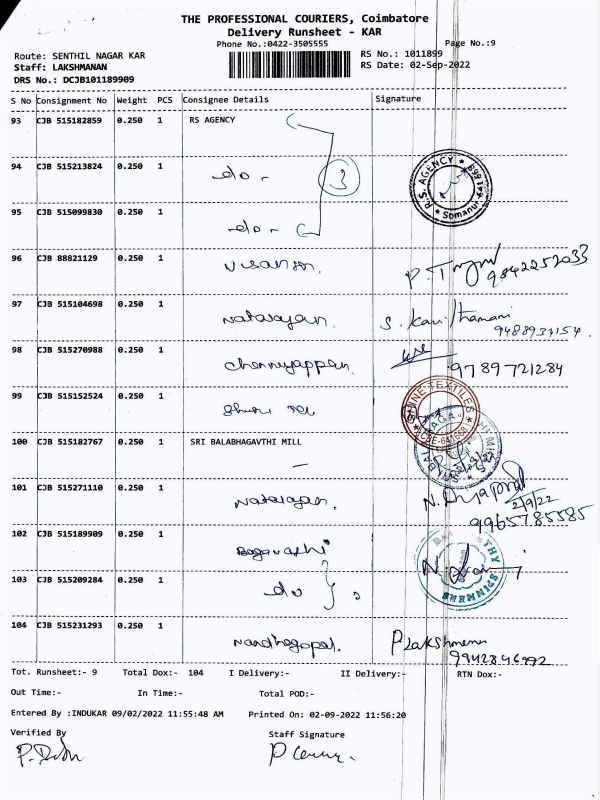 THE PROFESSIONAL COURIERS, Coimbatore
Delivery Runsheet - KAR
Phone No.:0422-3505555
Page No.:9
Route: SENTHIL NAGAR KAR
RS No.: 1011899
Staff: LAKSHMANAN
RS Date: 02-Sep-2022
DRS No.: DCJB101189909
S No Consignment No Weight PCS Consignee Details Signature
93 CJB 515182859 0.250 1 RS AGENCY
94 CJB 515213824 0.250 1 -do- 3
R.S. AGENCY * Somanur *
95 CJB 515099830 0.250 1 -do-
96 CJB 88821129 0.250 1 9842252033
97 CJB 515104698 0.250 1 Natarayan. S.
9488931154.
98 CJB 515270988 0.250 1 Chennyappan.
9789721284
99 CJB 515152524 0.250 1
TEXTILES
100 CJB 515182767 0.250 1 SRI BALABHAGAVTHI MILL
101 CJB 515271110 0.250 1 Natarayan.
2/9/22
9965785585
102 CJB 515189909 0.250 1 Bagavathi
103 CJB 515209284 0.250 1 do
SPINNERS
104 CJB 515231293 0.250 1 Nandhagopal. P Lakshmanan
9942846992
Tot. Runsheet:- 9 Total Dox:- 104 I Delivery:- II Delivery:- RTN Dox:-
Out Time:- In Time:- Total POD:-
Entered By :INDUKAR 09/02/2022 11:55:48 AM Printed On: 02-09-2022 11:56:20
Verified By Staff Signature